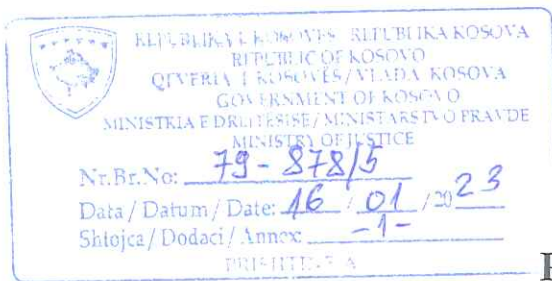 REPUBLIKA E KOSOVËS REPUBLIKA KOSOVA
REPUBLIC OF KOSOVO
QEVERIA E KOSOVËS / VLADA KOSOVA
GOVERNMENT OF KOSOVO
MINISTRIA E DREJTËSISË / MINISTARSTVO PRAVDE
MINISTRY OF JUSTICE
Nr.Br.No: 79-878/5
Data / Datum / Date: 16 / 01 / 2023
Shtojca / Dodaci / Annex: -1-
PRISHTINA